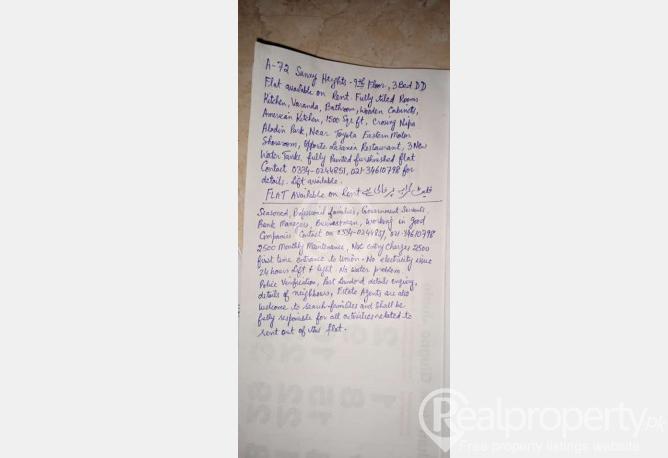 A-72 Saway Heights - 9th Floor, 3 Bed DD
Flat available on Rent. Fully tiled Rooms
Kitchen, Varanda, Bathroom, Wooden Cabinets,
American Kitchen, 1500 Sqr ft, Crosing Nipa
Aladin Park, Near Toyota Eastern Motor
Showroom, Opposite Lasania Restaurant, 3 New
Water Tanks. fully Painted furshnished flat
Contact 0334-0244851, 021-34610798 for
details. Lift available.
FLAT Available on Rent فلیٹ کرائے پر خالی ہے
Seasoned, Professional families, Government Servants,
Bank Managers, Businessman, Working in Good
Companies Contact on 0334-0244851, 021-34610798
2500 Monthly Maintenance, Noc entry Charges 2500
first time entrance to Union - No electricity issue
24 hours lift & light. No water problem.
Police Verification, Past Landlord details enquiry,
details of neighbours, Estate Agents are also
welcome to search families and shall be
fully responsible for all activities related to
rent out of this flat.
Realproperty.pk
Free property listings website